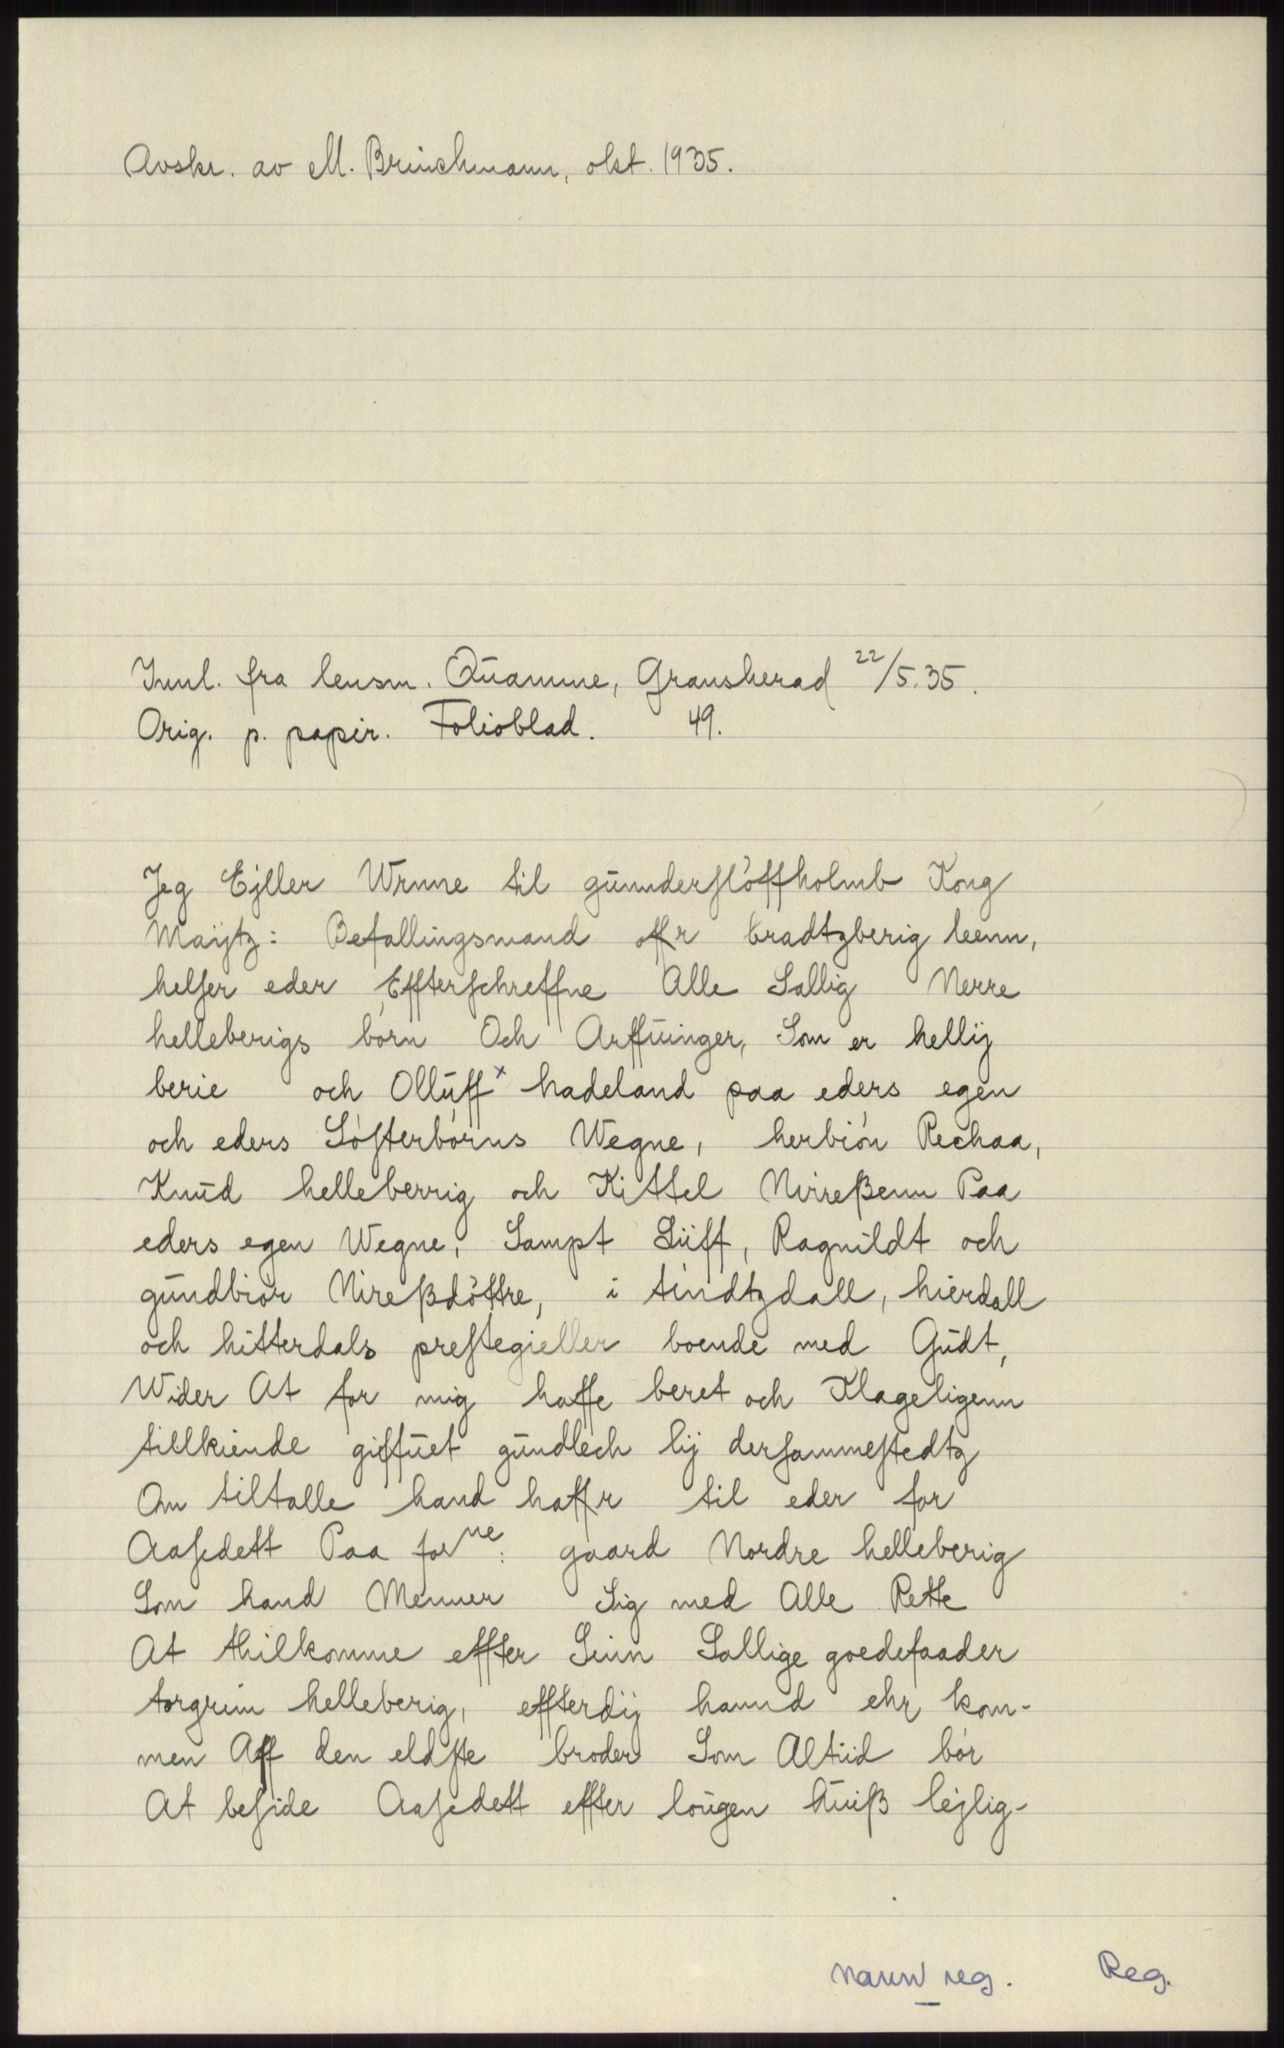 Avskr. av M. Brinchmann, okt. 1935.
Innl. fra lensm. Quamme, Gransherad 22/5.35.
Orig. p. papir. Folioblad. 49.
Jeg Ejller Wrnne til gunnderslöffholmb Kong
Maÿtz: Befallingsmand offr bradtzberig leenn,
helser eder Effterschreffne Alle Sallig Nerre
helleberigs börn Och Arffuinger, Som er hellij
berie och Olluff x hadeland paa eders egen
och eders Sösterbörns Wegne, herbiön Rechaa,
Knud helleberrig och Kittel Nirreßenn Paa
eders egen Wegne, Sampt Siiff, Ragnildt och
gundbiör Nireßdöttre, i tindtzdall, hierdall
och hitterdals prestegieller boende med Gudt,
Wider At for mig haffe beret och Klageligenn
tillkiende giffuet gundlech lij dersammestedtz
Om tiltalle hand haffr til eder for
Aasedett Paa forne: gaard Nordre helleberig
Som hand Menner Sig med Alle Rette
At thilkomme effter Sinn Sallige goedefaader
torgrim helleberig, effterdij hannd ehr kom-
men Aff den eldste broder Som Altiid bör
At beside Aasedett effter lougen huiß lejlig-
navn reg. Reg.